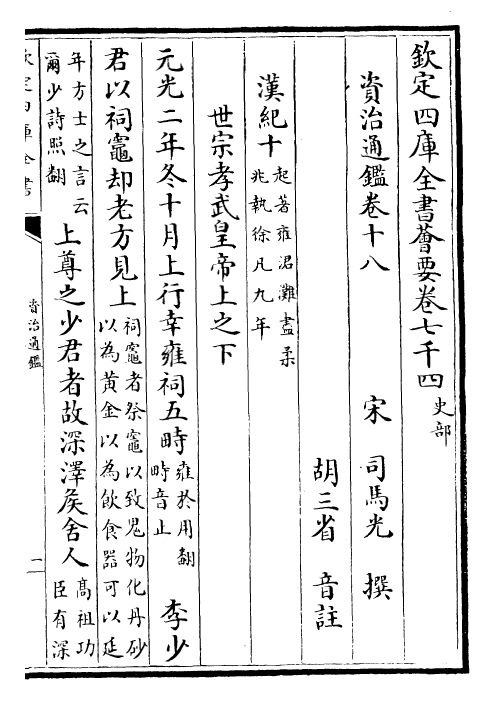 欽定四庫全書薈要卷七千四
史部
資治通鑑卷十八
宋 司馬光 撰
胡三省 音註
漢紀十
起著雍涒灘盡柔
兆執徐凡九年
世宗孝武皇帝上之下
元光二年冬十月上行幸雍祠五畤
雍於用翻
畤音止
李少
君以祠竈却老方見上
祠竈者祭竈以致鬼物化丹砂
以為黄金以為飲食器可以延
年方士之言云
爾少詩照翻
上尊之少君者故深澤矦舍人
高祖功
臣有深
欽定四庫全書
資治通鑑
一